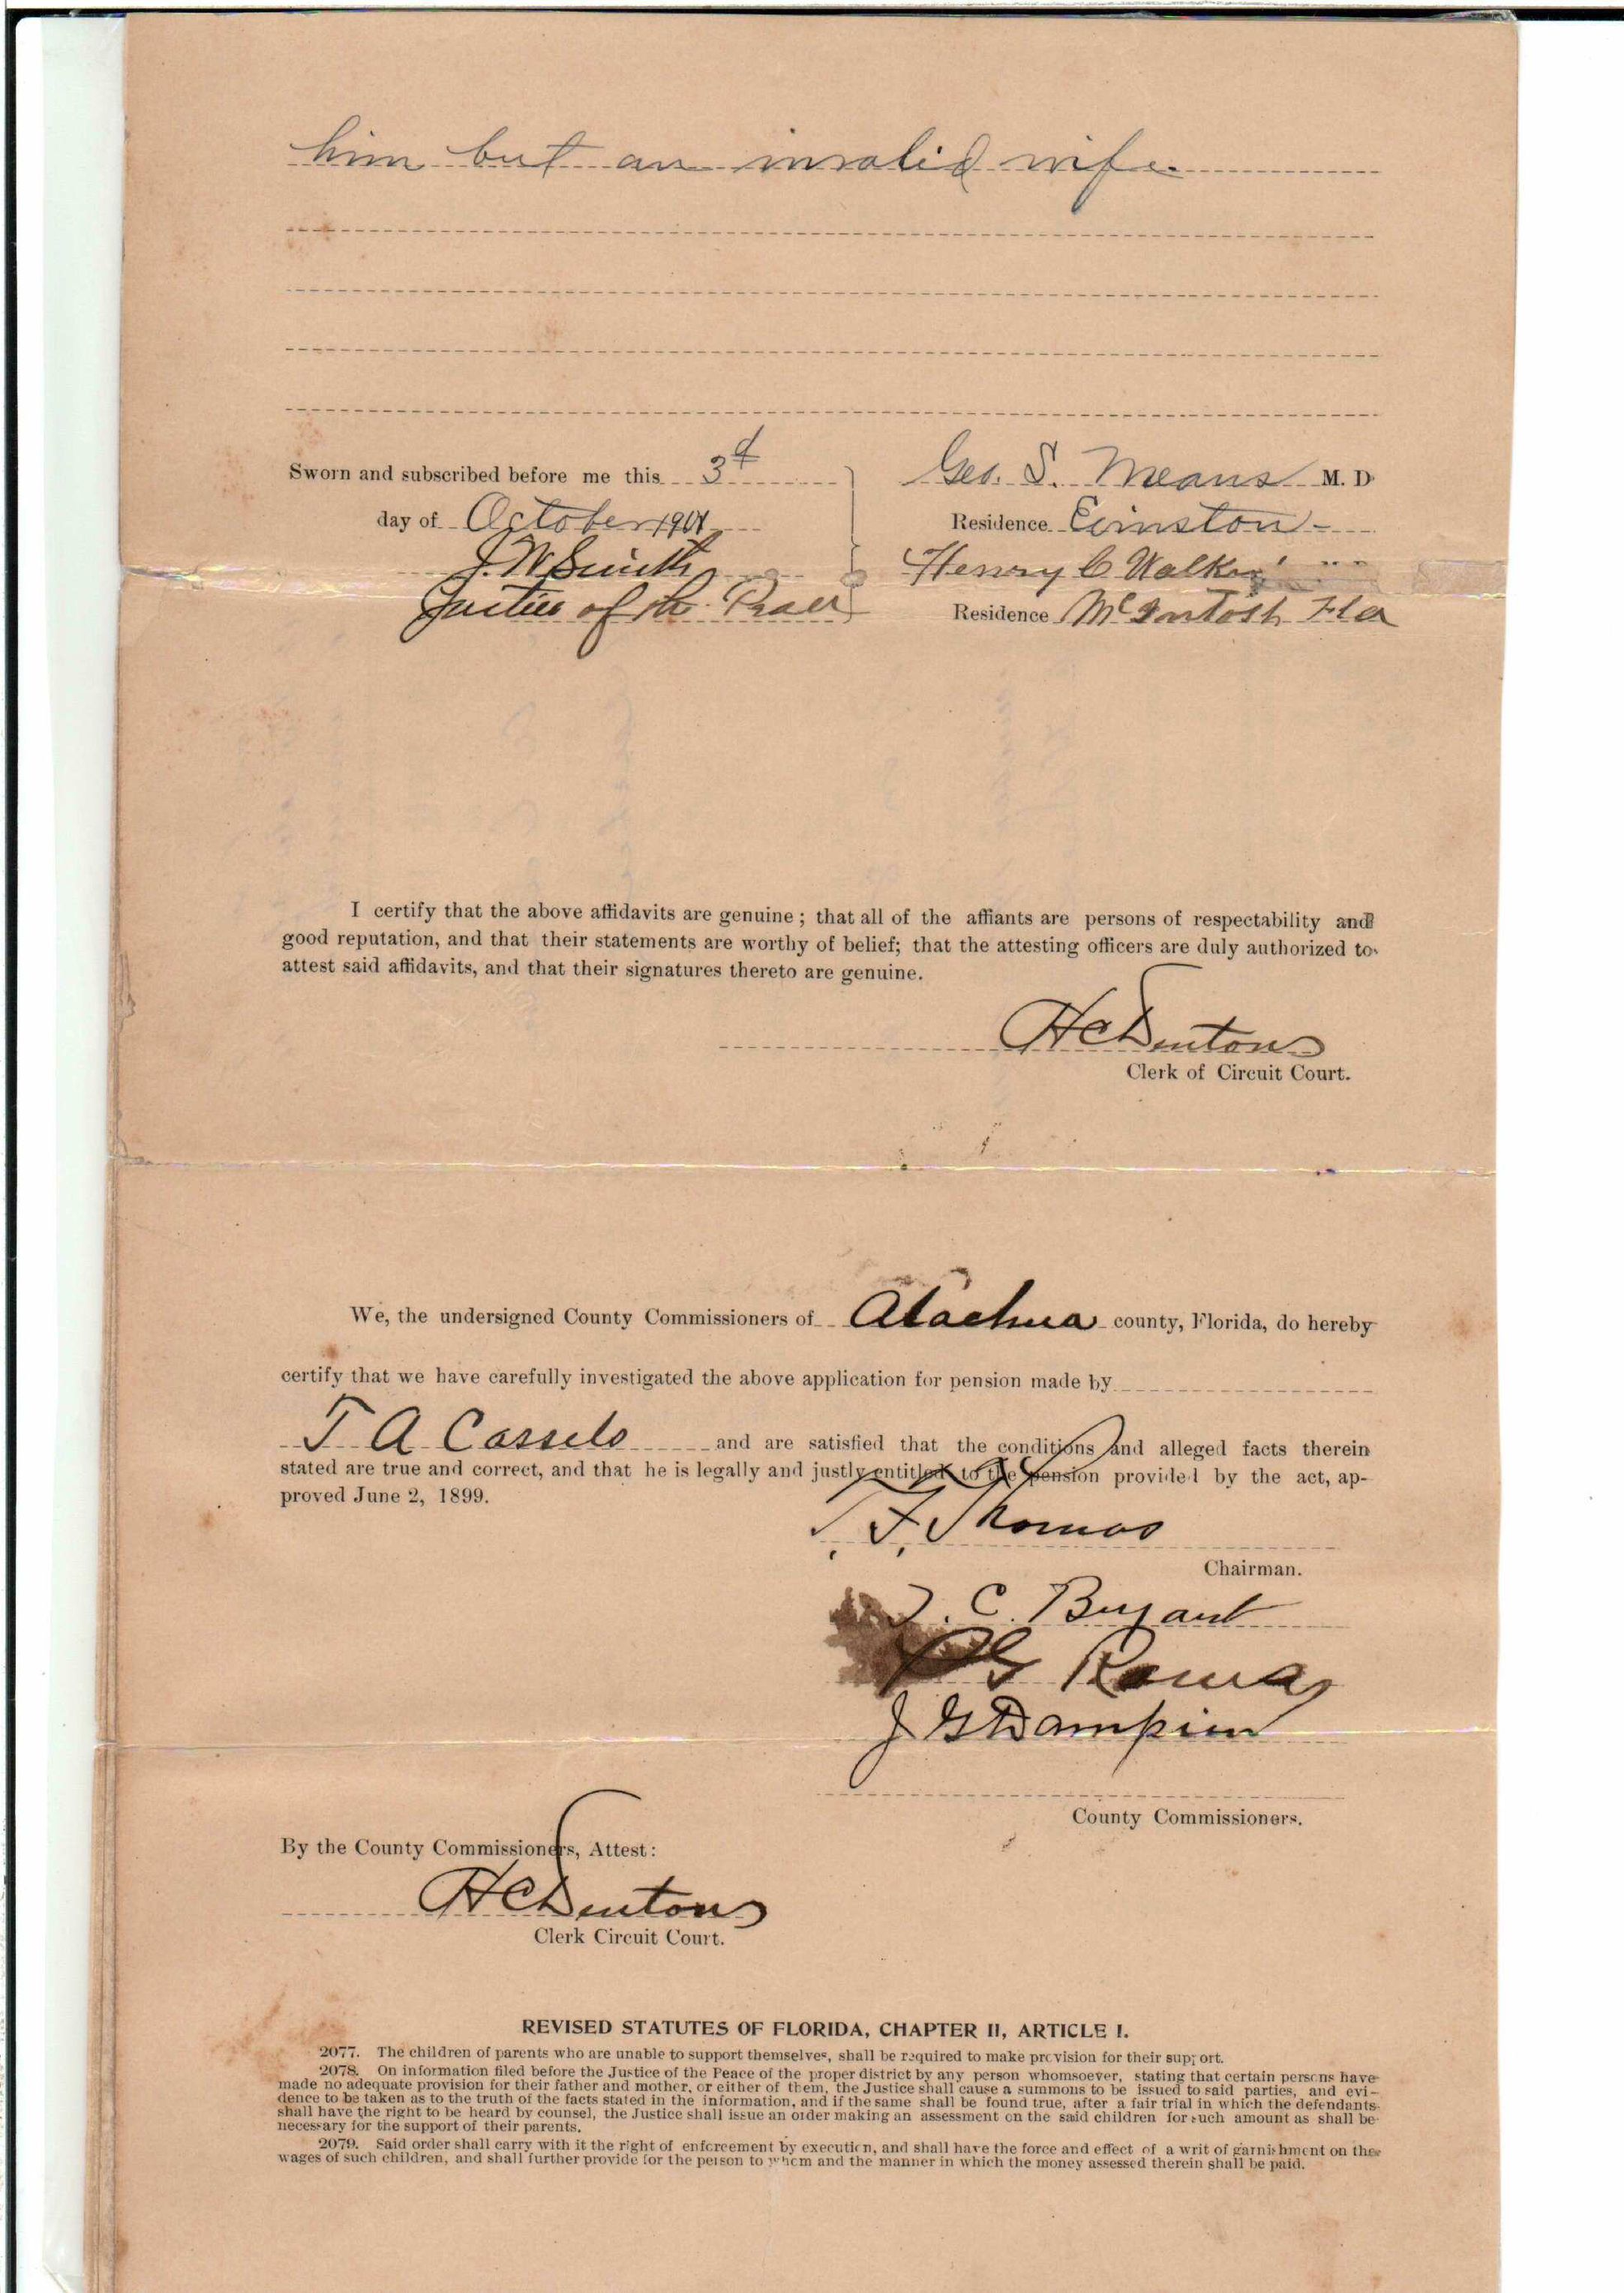 him but an invalid wife
Sworn and subscribed before me this 3d
day of October 1901
J. W. Smith
Justice of the Peace
Geo. S. Means M. D.
Residence Evinston
Henry C Walker " "
Residence McIntosh Fla
I certify that the above affidavits are genuine; that all of the affiants are persons of respectability and
good reputation, and that their statements are worthy of belief; that the attesting officers are duly authorized to
attest said affidavits, and that their signatures thereto are genuine.
H C Denton
Clerk of Circuit Court.
We, the undersigned County Commissioners of Alachua county, Florida, do hereby
certify that we have carefully investigated the above application for pension made by
T A Cassels and are satisfied that the conditions and alleged facts therein
stated are true and correct, and that he is legally and justly entitled to the pension provided by the act, ap-
proved June 2, 1899.
T. F. Thomas
Chairman.
C. Bryant
G
J G Dampier
County Commissioners.
By the County Commissioners, Attest:
H C Denton
Clerk Circuit Court.
REVISED STATUTES OF FLORIDA, CHAPTER II, ARTICLE I.
2077. The children of parents who are unable to support themselves, shall be required to make provision for their support.
2078. On information filed before the Justice of the Peace of the proper district by any person whomsoever, stating that certain persons have
made no adequate provision for their father and mother, or either of them, the Justice shall cause a summons to be issued to said parties, and evi-
dence to be taken as to the truth of the facts stated in the information, and if the same shall be found true, after a fair trial in which the defendants
shall have the right to be heard by counsel, the Justice shall issue an order making an assessment on the said children for such amount as shall be
necessary for the support of their parents.
2079. Said order shall carry with it the right of enforcement by execution, and shall have the force and effect of a writ of garnishment on the
wages of such children, and shall further provide for the person to whom and the manner in which the money assessed therein shall be paid.